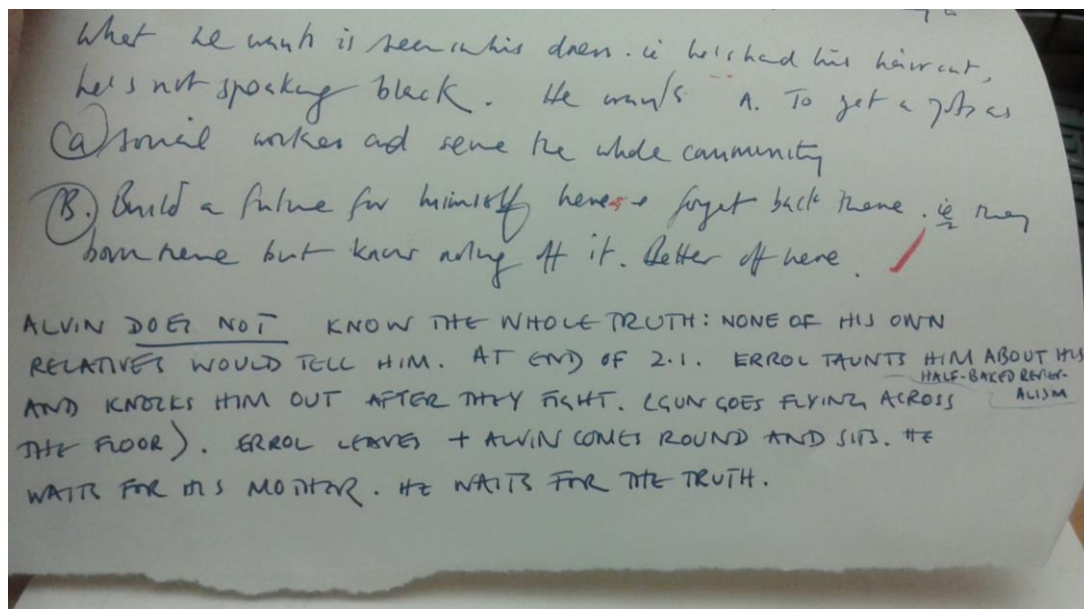 What he wants is seen in his dress. ie he's had his haircut,
he's not speaking black. He wants A. To get a job as
(a) social worker and serve the whole community
(B.) Build a future for himself here + forget back there. ie they
born here but know nothing of it. Better off here.
ALVIN DOES NOT KNOW THE WHOLE TRUTH: NONE OF HIS OWN
RELATIVES WOULD TELL HIM. AT END OF 2.1. ERROL TAUNTS HIM ABOUT HIS
HALF-BAKED REVER-
ALISM
AND KNOCKS HIM OUT AFTER THEY FIGHT. (GUN GOES FLYING ACROSS
THE FLOOR). ERROL LEAVES + ALVIN COMES ROUND AND SITS. HE
WAITS FOR HIS MOTHER. HE WAITS FOR THE TRUTH.